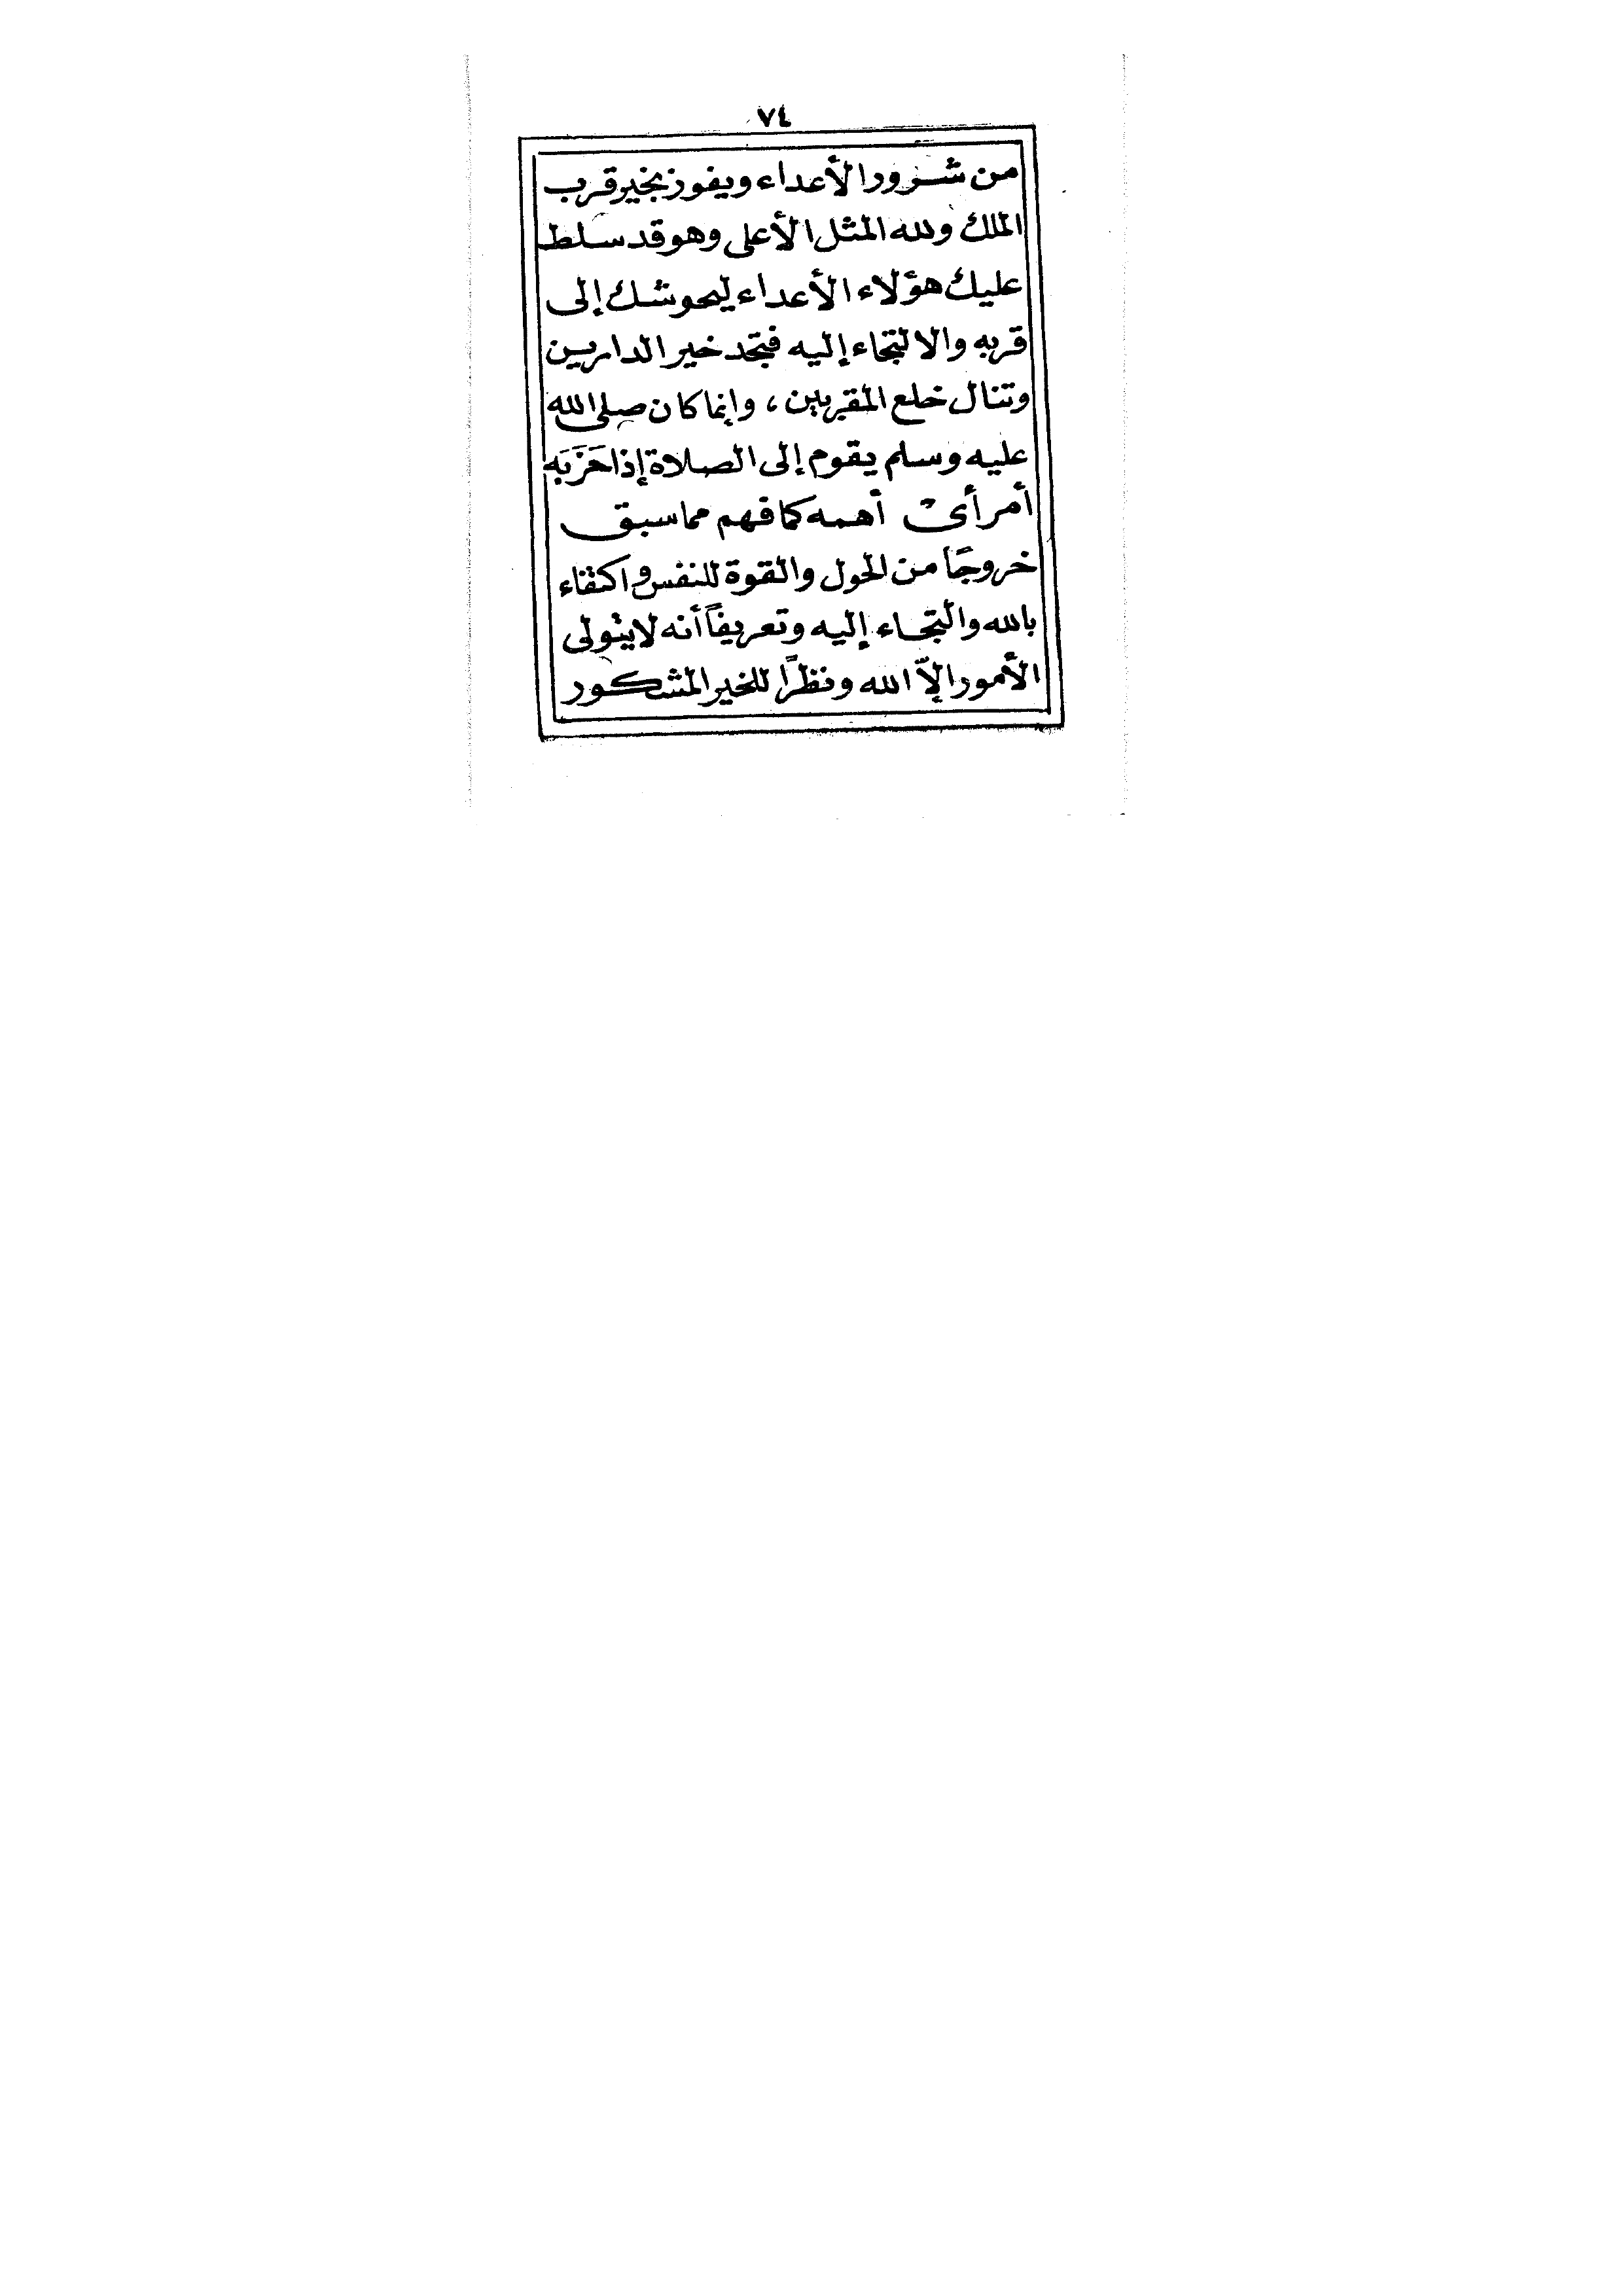 ٧٤
من شرور الأعداء ويفوز بخير قرب
الملك ولله المثل الأعلى وهو قد سلط
عليك هؤلاء الأعداء ليحوشك إلى
قربه والالتجاء إليه فتجد خير الدارين
وتنال خلع المقربين ، وإنما كان صلى الله
عليه وسلم يقوم إلى الصلاة إذا حَزَبَه
أمر أى أهمه كما فهم مما سبق
خروجًا من الحول والقوة للنفس و اكتفاء
بالله والتجاء إليه وتعريفاً أنه لا يتولى
الأمور إلاّ الله ونظرًا للخير المشكور